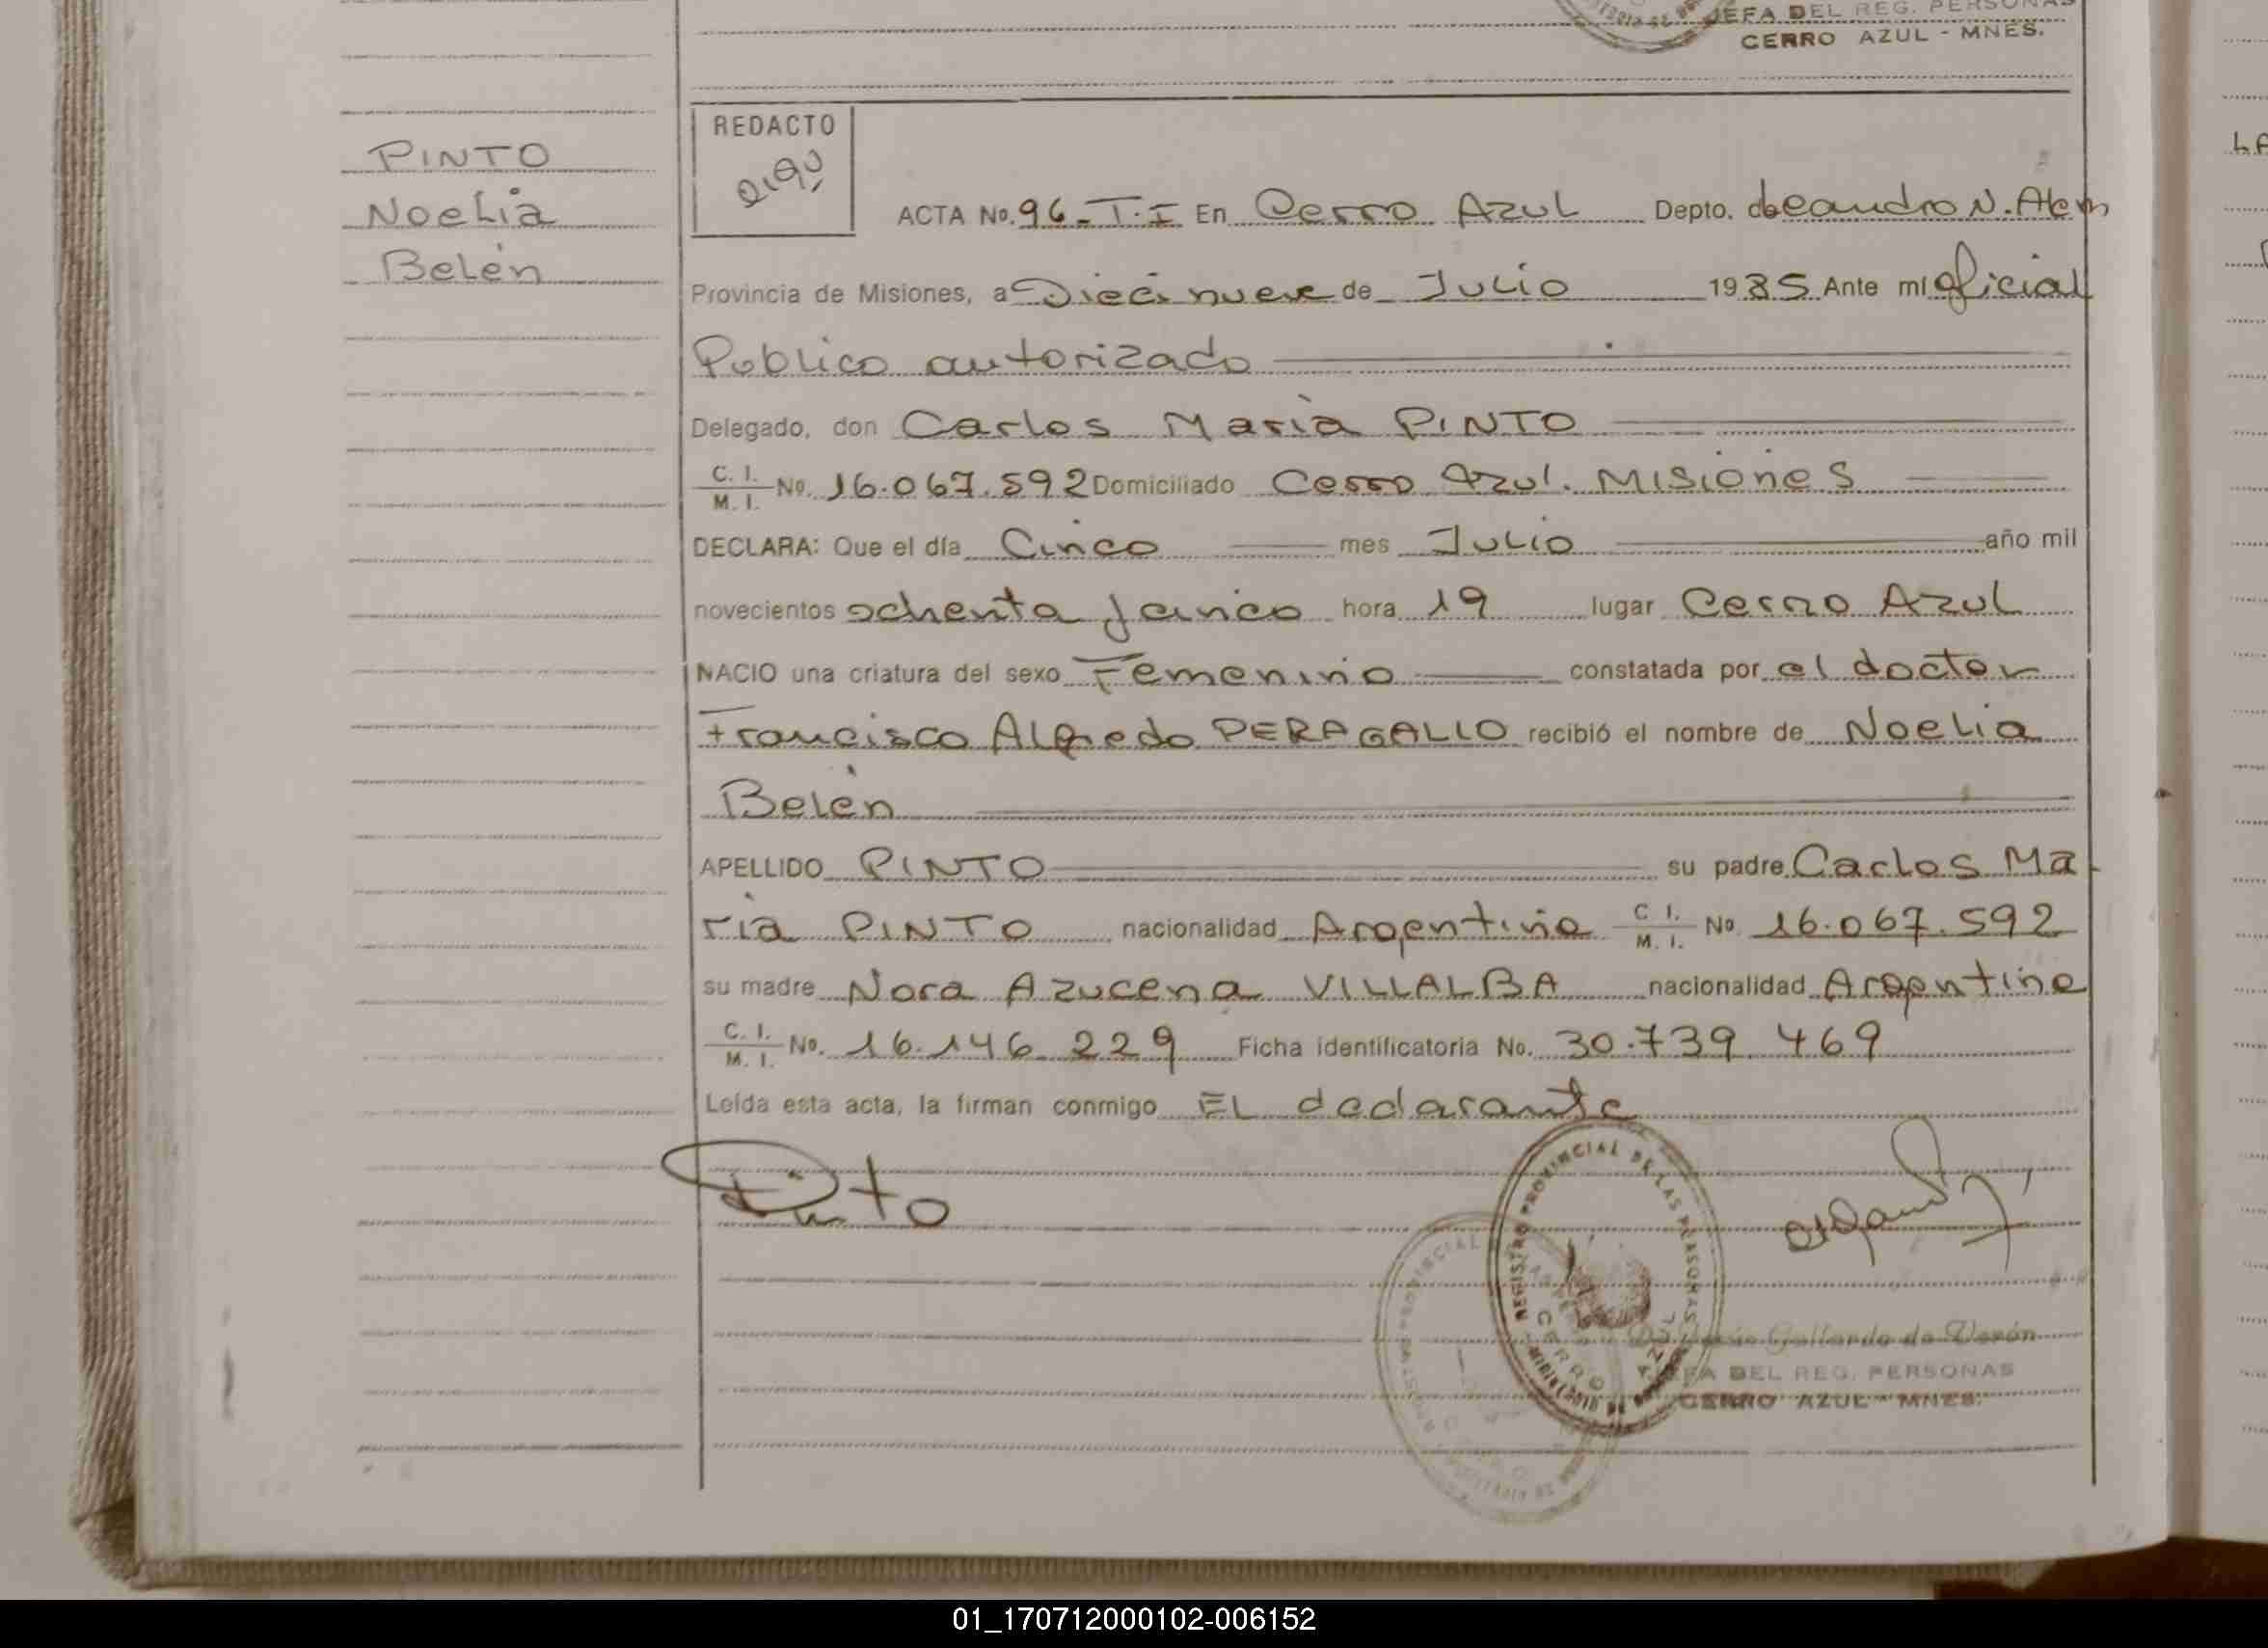 JEFA DEL REG. PERSONAS
CERRO AZUL - MNES.
PINTO
Noelia
Belén
REDACTO
ACTA No. 96 - T. I En Cerro Azul Depto. Leandro N. Alem
Provincia de Misiones, a Diecinueve de Julio 1985 Ante mí oficial
Publico autorizado
Delegado, don Carlos Maria PINTO
C. I.
M. I. No. 16.067.592 Domiciliado Cerro Azul. MISIONES
DECLARA: Que el día Cinco mes Julio año mil
novecientos ochenta y cinco hora 19 lugar Cerro Azul
NACIO una criatura del sexo Femenino constatada por el doctor
Francisco Alfredo PERAGALLO recibió el nombre de Noelia
Belén
APELLIDO PINTO su padre Carlos Ma
ria PINTO nacionalidad Argentina C. I.
M. I. No. 16.067.592
su madre Nora Azucena VILLALBA nacionalidad Argentina
C. I.
M. I. No. 16.146.229 Ficha identificatoria No. 30.739.469
Leída esta acta, la firman conmigo EL declarante
Pinto
REGISTRO PROVINCIAL DE LAS PERSONAS
CERRO AZUL
Gallardo de Verón
JEFA DEL REG. PERSONAS
CERRO AZUL - MNES.
01_170712000102-006152